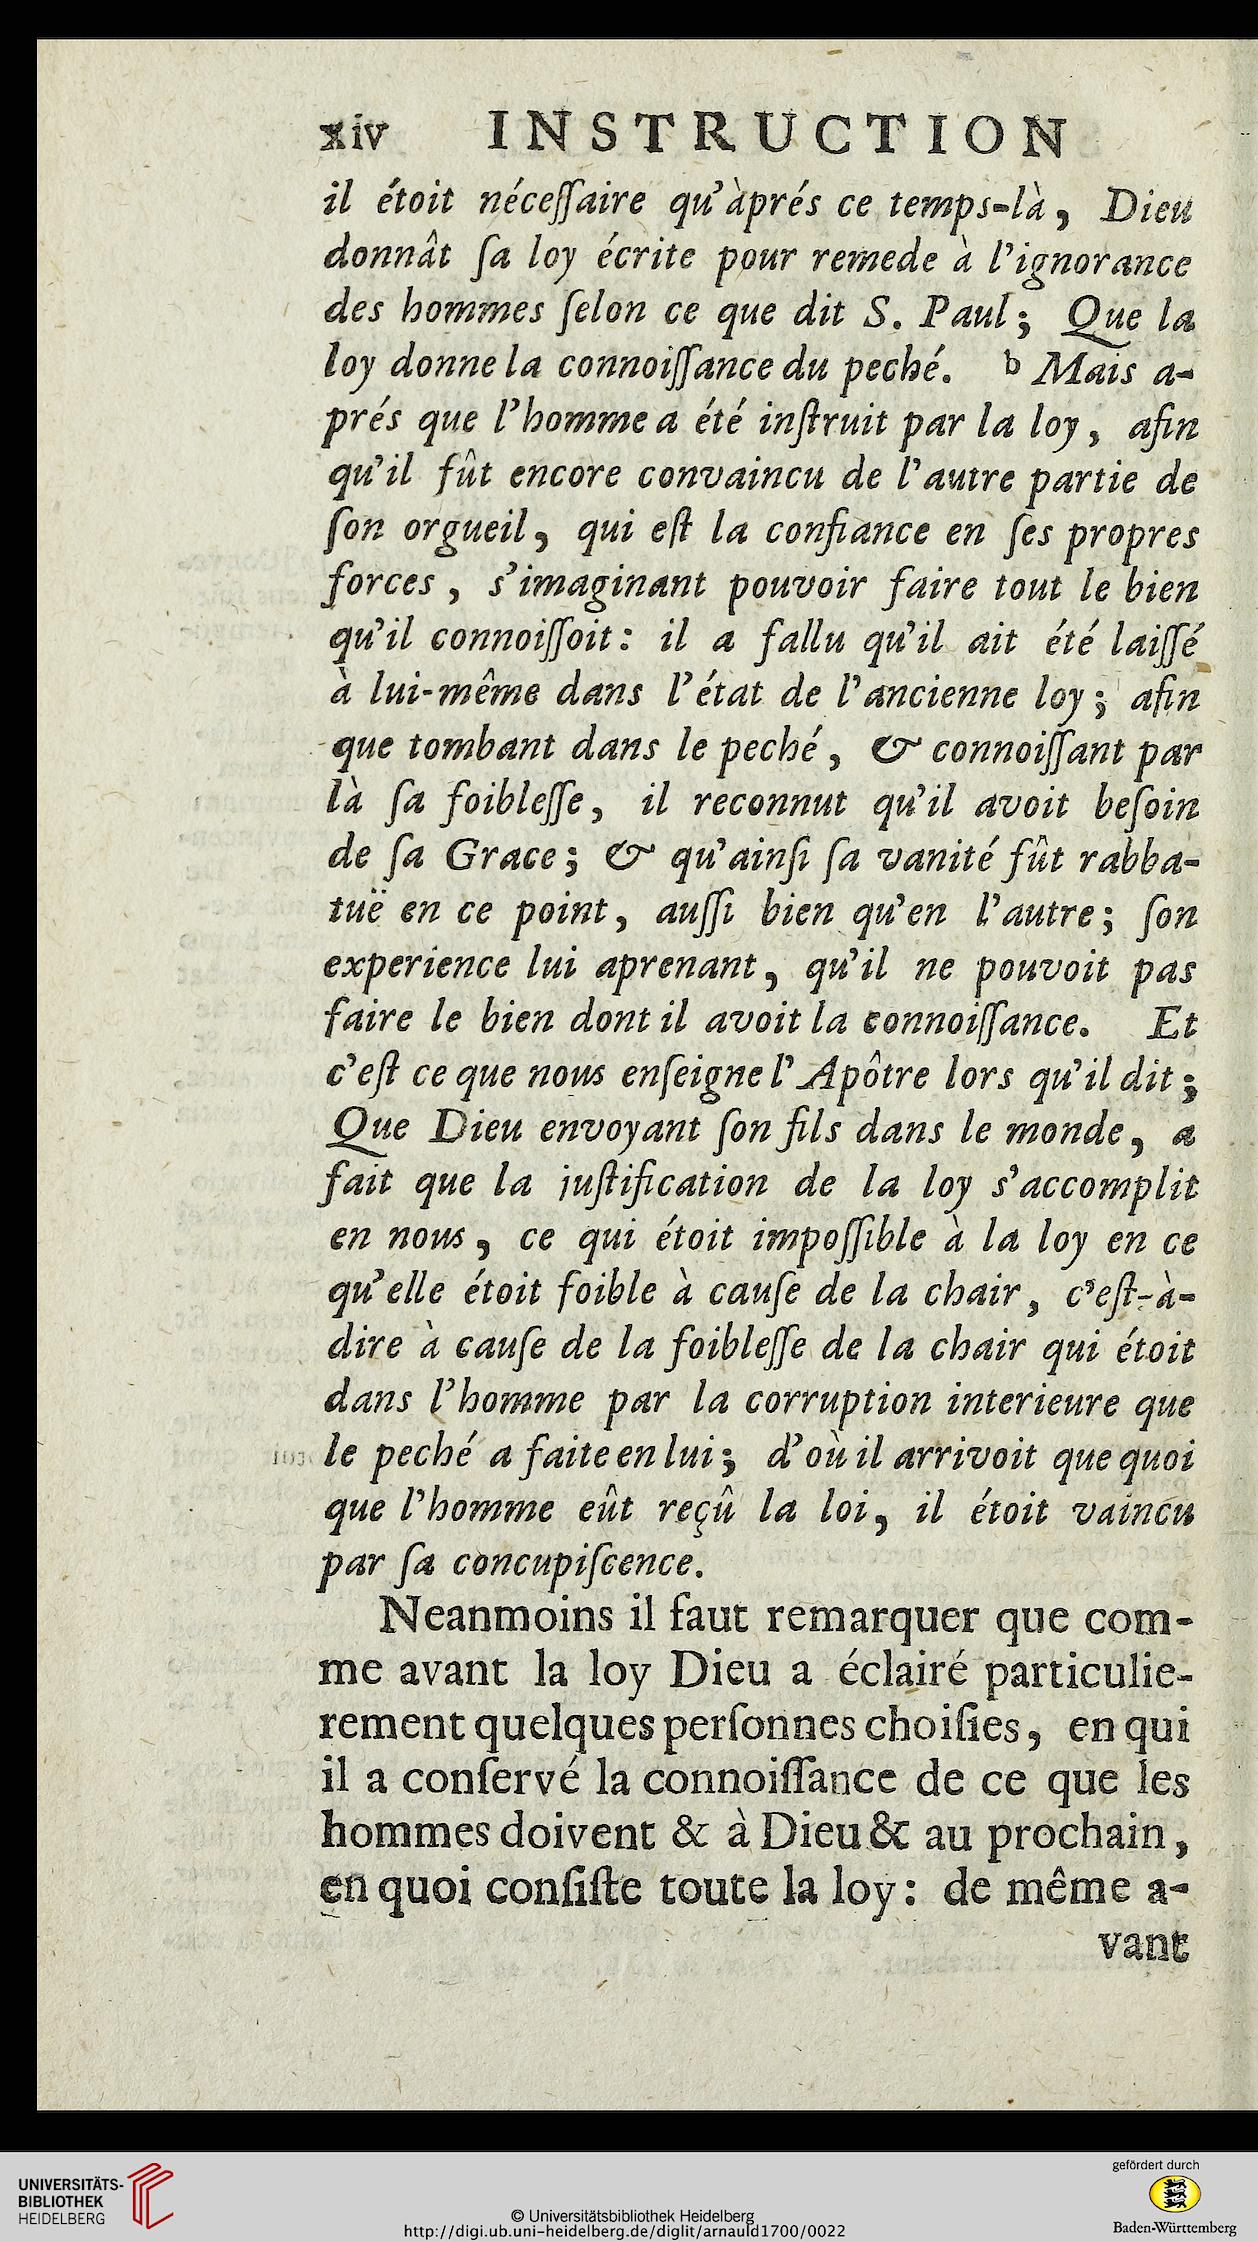 xiv INSTRUCTION
il étoit néceſſaire qu'àprés ce temps-là, Dieu
donnât ſa loy écrite pour remede à l'ignorance
des hommes ſelon ce que dit S. Paul; Que la
loy donne la connoiſſance du peché. b Mais a-
prés que l'homme a été inſtruit par la loy, afin
qu'il fût encore convaincu de l'autre partie de
ſon orgueil, qui eſt la confiance en ſes propres
forces, s'imaginant pouvoir faire tout le bien
qu'il connoiſſoit: il a fallu qu'il ait été laiſſé
à lui-même dans l'état de l'ancienne loy; afin
que tombant dans le peché, & connoiſſant par
là ſa foibleſſe, il reconnut qu'il avoit beſoin
de ſa Grace; & qu'ainſi ſa vanité fût rabba-
tuë en ce point, auſſi bien qu'en l'autre; ſon
experience lui aprenant, qu'il ne pouvoit pas
faire le bien dont il avoit la connoiſſance. Et
c'eſt ce que nous enſeigne l'Apôtre lors qu'il dit;
Que Dieu envoyant ſon fils dans le monde, a
fait que la juſtification de la loy s'accomplit
en nous, ce qui étoit impoſſible à la loy en ce
qu'elle étoit foible à cauſe de la chair, c'eſt-à-
dire à cauſe de la foibleſſe de la chair qui étoit
dans l'homme par la corruption interieure que
le peché a faite en lui; d'où il arrivoit que quoi
que l'homme eût reçû la loi, il étoit vaincu
par ſa concupiſcence.
Neanmoins il faut remarquer que com-
me avant la loy Dieu a éclairé particulie-
rement quelques perſonnes choiſies, en qui
il a conſervé la connoiſſance de ce que les
hommes doivent & à Dieu & au prochain,
en quoi conſiſte toute la loy: de même a-
vant
UNIVERSITÄTS-
BIBLIOTHEK
HEIDELBERG
© Universitätsbibliothek Heidelberg
http://digi.ub.uni-heidelberg.de/diglit/arnauld1700/0022
gefördert durch
Baden-Württemberg